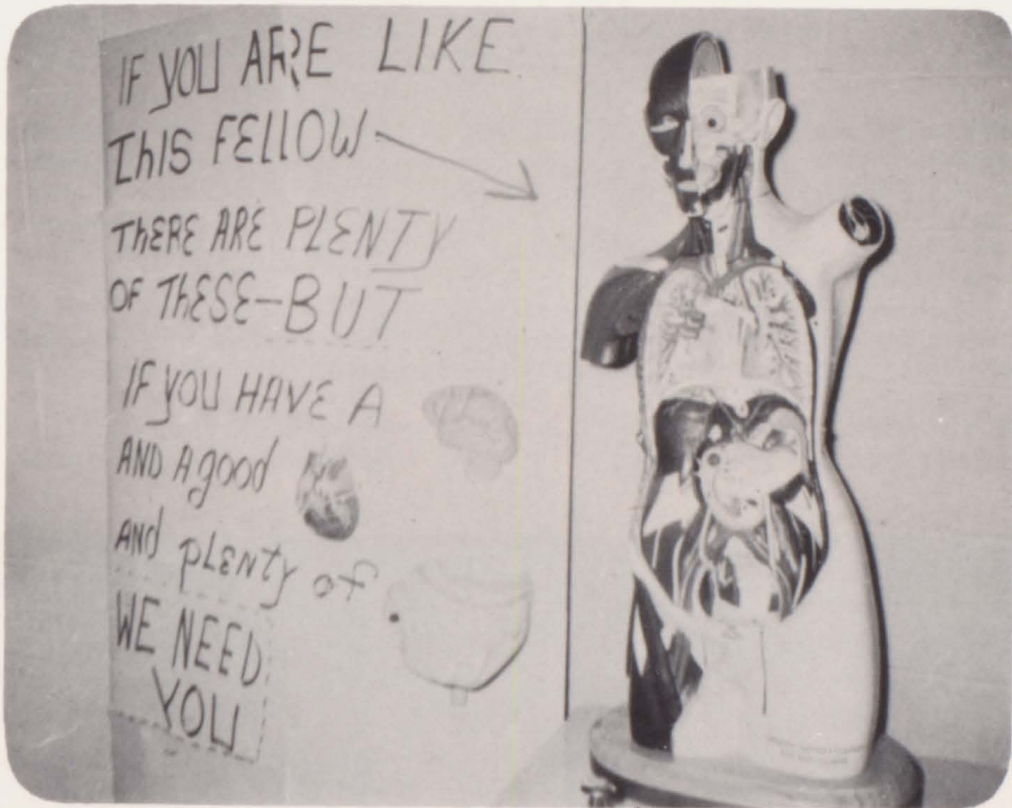 IF YOU ARE LIKE
ThIS FELLOW
ThERE ARE PLENTY
OF ThESE-BUT
IF YOU HAVE A
AND A good
ANd PLENTY of
WE NEED
YOU